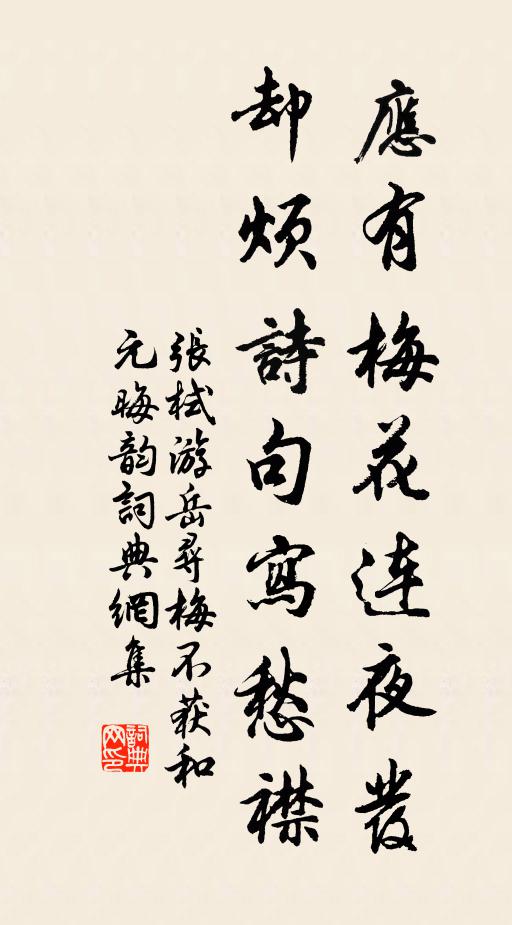 應有梅花連夜發
却煩詩句寫愁襟
張栻游岳尋梅不获和
元晦韵詞典網集
詞典
网印